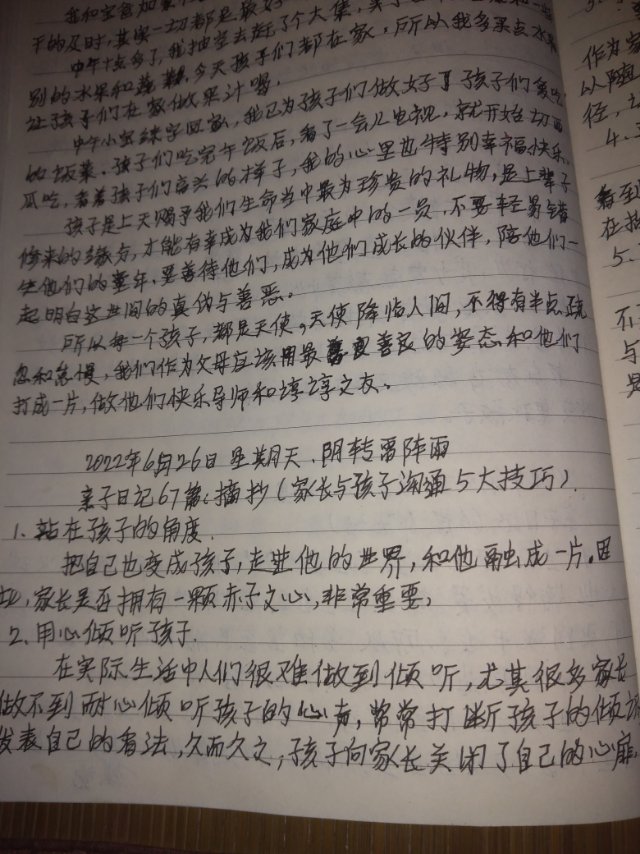 我和宝爸
干的及时,其实一切都是最好
中午十点多了,我抽空去赶了个大集,
别的水果和蔬菜,今天孩子们都在家,所以我多买点水果
让孩子们在家做果汁喝,
中午小宝练字回家,我已为孩子们做好了孩子们爱吃
的饭菜。孩子们吃完午饭后,看了一会儿电视,就开始切西
瓜吃,看着孩子们高兴的样子,我的心里也特别幸福快乐。
孩子是上天赐予我们生命当中最为珍贵的礼物,是上辈子
修来的缘分,才能有幸成为我们家庭中的一员,不要轻易错
失他们的童年,要善待他们,成为他们成长的伙伴,陪他们一
起明白这世间的真伪与善恶。
所以每一个孩子,都是天使。天使降临人间,不得有半点疏
忽和怠慢,我们作为父母应该用最善良的姿态和他们
打成一片,做他们快乐导师和谆谆之友。
2022年6月26日 星期天.阴转雷阵雨
亲子日记67篇:摘抄(家长与孩子沟通5大技巧)
1.站在孩子的角度.
把自己也变成孩子,走进他的世界,和他融成一片。因
此,家长是否拥有一颗赤子之心,非常重要,
2.用心倾听孩子.
在实际生活中人们很难做到倾听,尤其很多家长
做不到耐心倾听孩子的心声,常常打断孩子的倾诉
发表自己的看法,久而久之,孩子向家长关闭了自己的心扉,
作为家
以随
径,
4.
看到
在指
5.
不
与
是